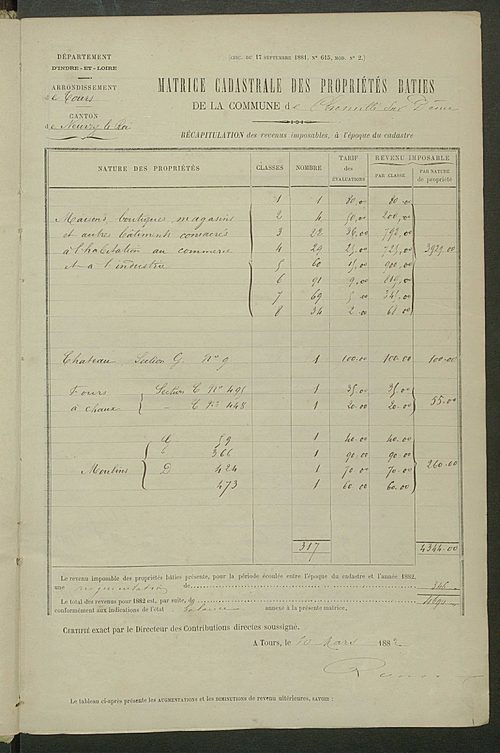 DÉPARTEMENT
D'INDRE-ET-LOIRE
ARRONDISSEMENT
de Tours
CANTON
de Neuvy le Roi
(CIRC. DU 17 SEPTEMBRE 1881, N° 615, MOD. N° 2.)
MATRICE CADASTRALE DES PROPRIÉTÉS BATIES
DE LA COMMUNE de
RÉCAPITULATION des revenus imposables, à l'époque du cadastre
NATURE DES PROPRIÉTÉS CLASSES NOMBRE TARIF des ÉVALUATIONS REVENU IMPOSABLE PAR CLASSE PAR NATURE de propriété
1 1 80.00 80.00
Maisons, boutiques, magasins 2 4 50.00 200.00
et autres bâtiments consacrés 3 22 36.00 792.00
à l'habitation au commerce 4 29 25.00 725.00 3929.00
et à l'industrie 5 60 15.00 900.00
6 91 9.00 819.00
7 69 5.00 345.00
8 34 2.00 68.00
Chateau Section G N° 9 1 100.00 100.00 100.00
Fours Section C N° 491 1 35.00 35.00
à chaux C N° 448 1 20.00 20.00 55.00
59 1 40.00 40.00
566 1 90.00 90.00
Moulins D 424 1 70.00 70.00 260.00
473 1 60.00 60.00
317 4344.00
Le revenu imposable des propriétés bâties présente, pour la période écoulée entre l'époque du cadastre et l'année 1882,
une augmentation de 346
Le total des revenus pour 1882 est, par suite, de 4690
conformément aux indications de l'état balance annexé à la présente matrice,
CERTIFIÉ exact par le Directeur des Contributions directes soussigné.
A TOURS, le 10 Mars 1882
Le tableau ci-après présente les AUGMENTATIONS et les DIMINUTIONS de revenu ultérieures, SAVOIR :